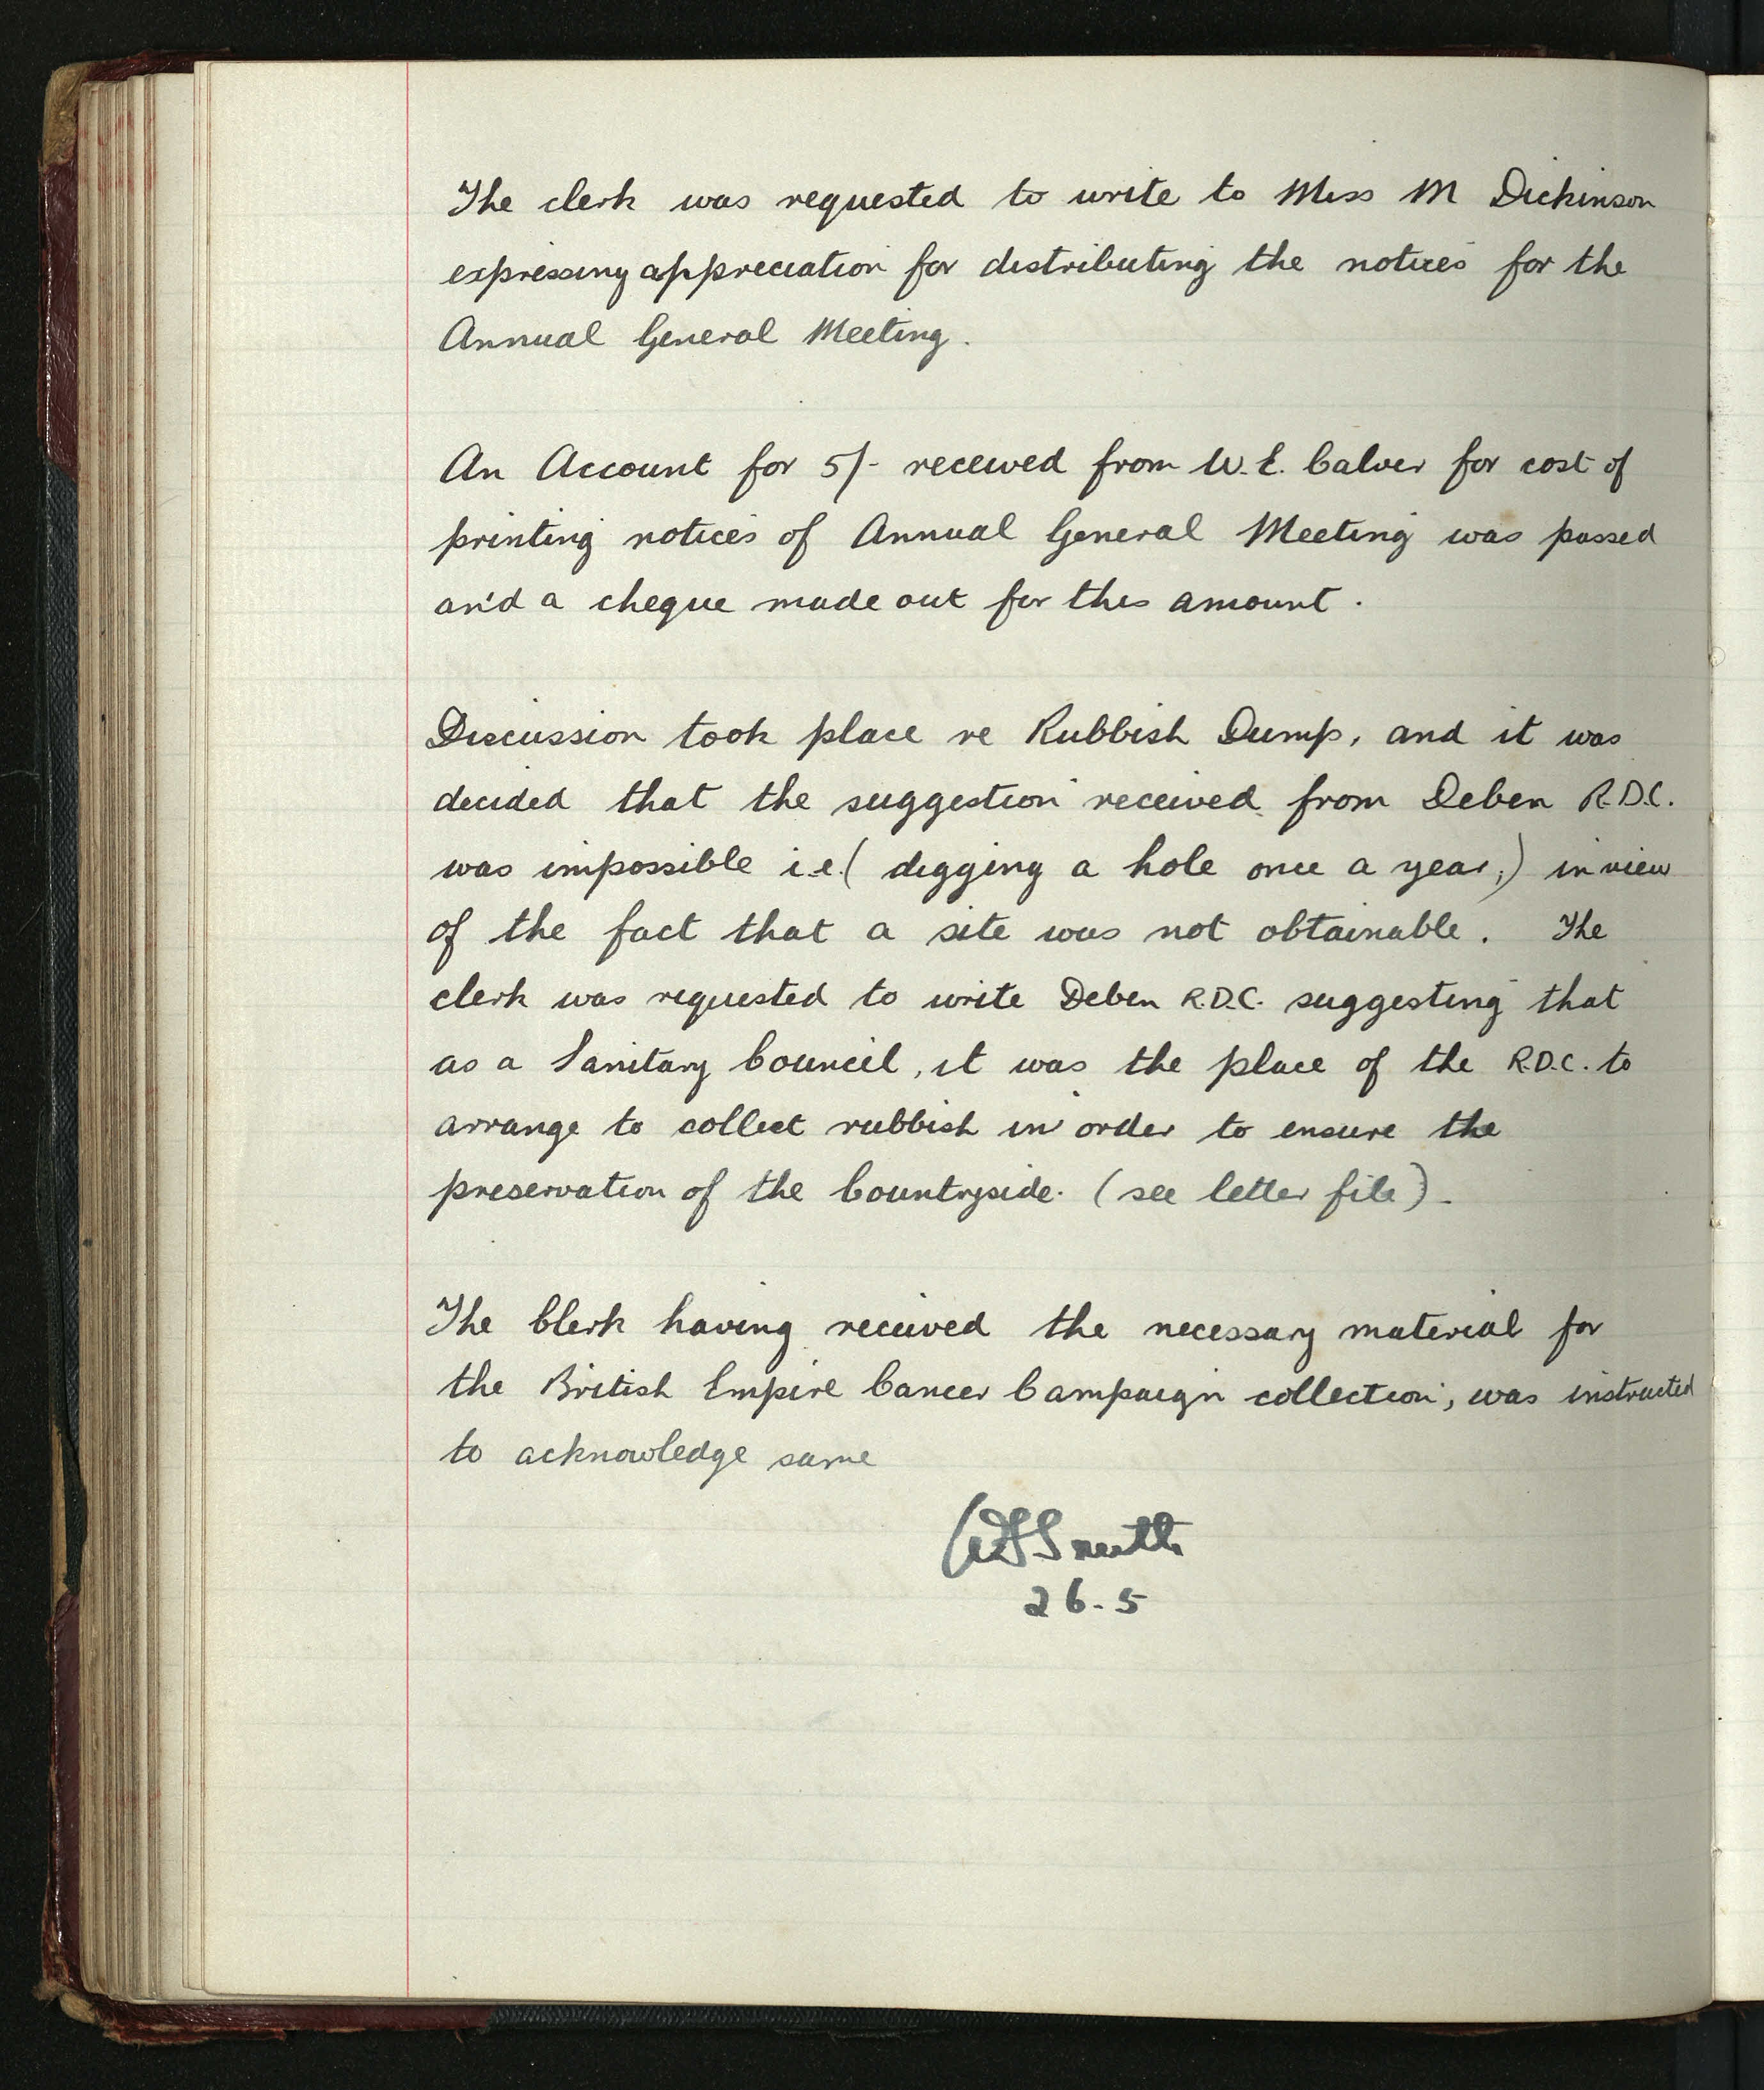 The clerk was requested to write to Miss M Dickinson
expressing appreciation for distributing the notices for the
Annual General Meeting.
An Account for 5/- received from W.E. Calver for cost of
printing notices of Annual General Meeting was passed
and a cheque made out for this amount.
Discussion took place re Rubbish Dump, and it was
decided that the suggestion received from Deben R.D.C.
was impossible i.e. ( digging a hole once a year,) in view
of the fact that a site was not obtainable. The
clerk was requested to write Deben R.D.C. suggesting that
as a Sanitary Council, it was the place of the R.D.C. to
arrange to collect rubbish in order to ensure the
preservation of the Countryside. (see letter file).
The Clerk having received the necessary material for
the British Empire Cancer Campaign collection, was instructed
to acknowledge same
Smith
26.5